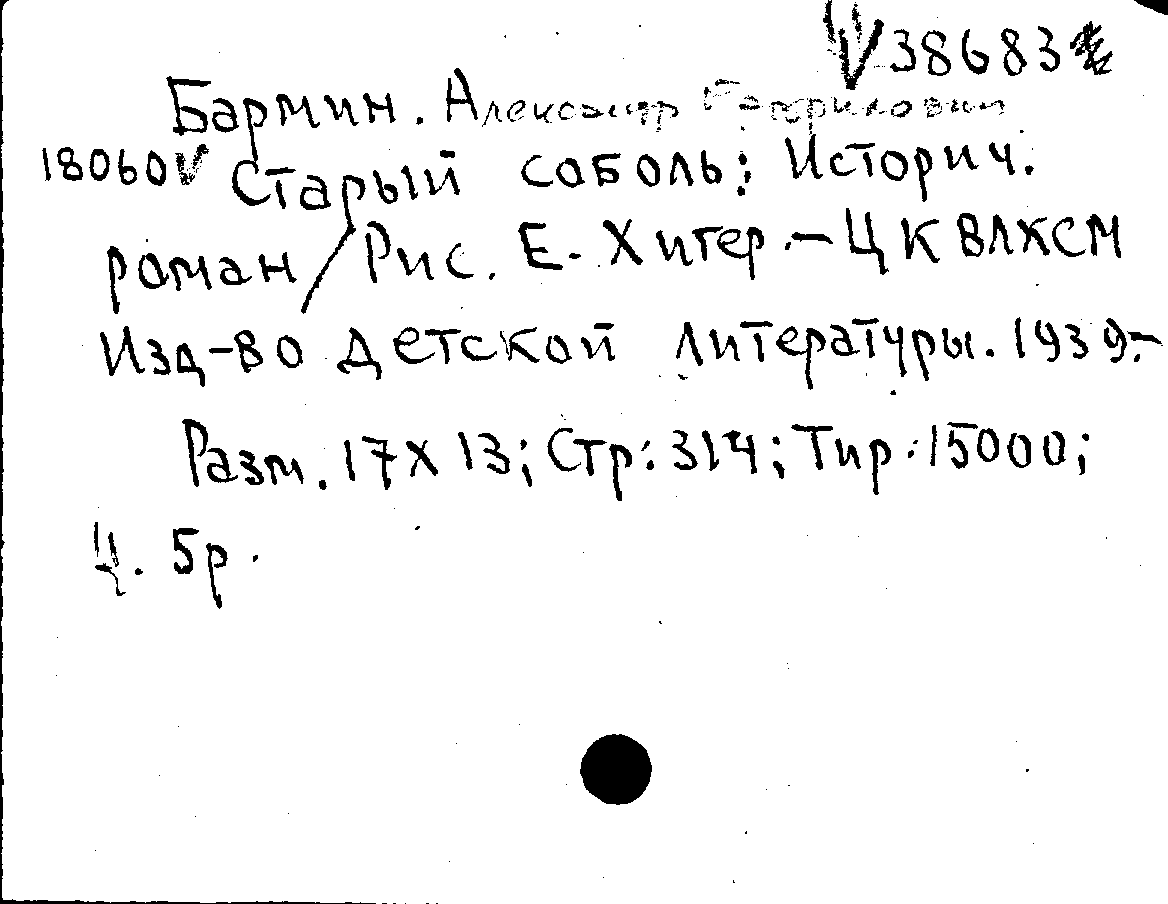 V 38683
Бармин. Александр Гаврилович
18060 V Старый соболь: Историч.
роман / Рис. Е. Хигер. - ЦК ВЛКСМ
Изд-во детской литературы. 1939.-
Разм. 17х13; Стр: 314; Тир: 15000;
Ц. 5р.